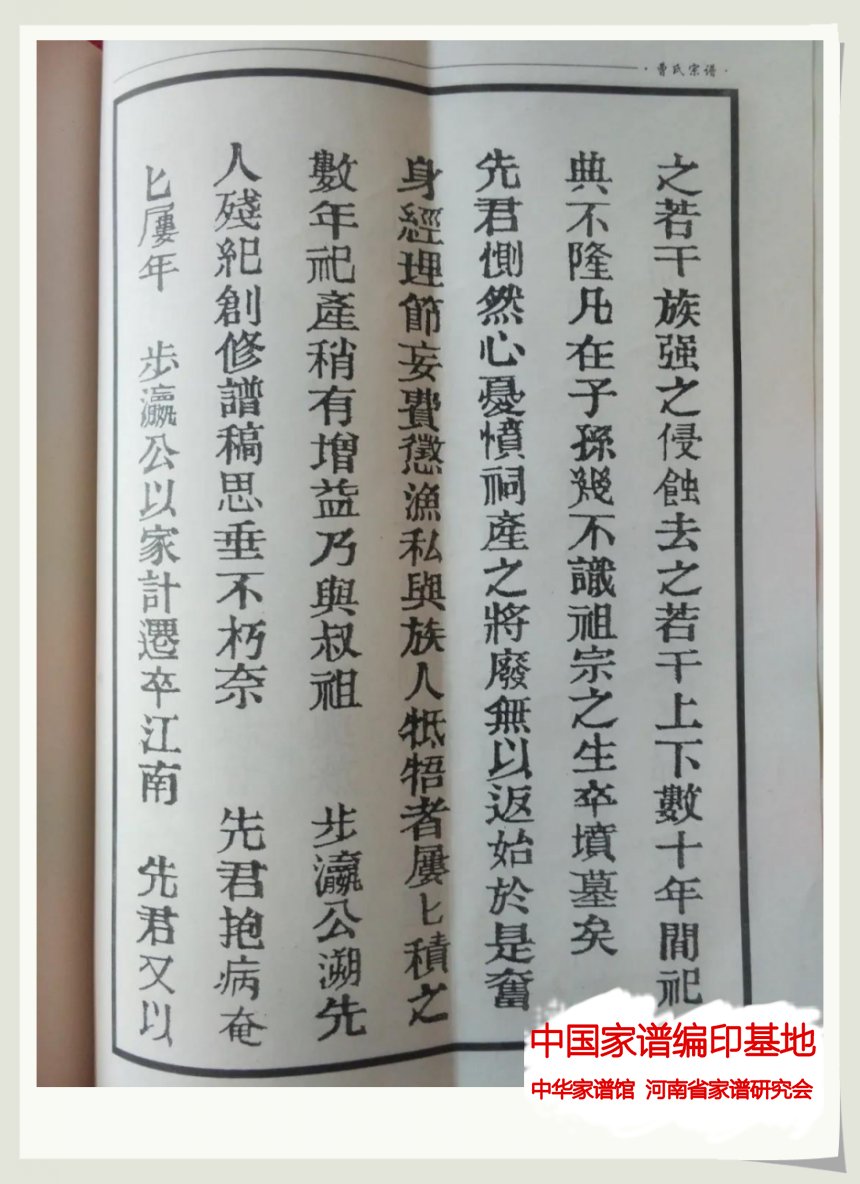 ·曹氏宗谱·
之若干族强之侵蝕去之若干上下數十年間祀
典不隆凡在子孫幾不識祖宗之生卒墳墓矣
先君惻然心憂憤祠產之將廢無以返始於是奮
身經理節妄費懲漁私與族人牴牾者屢匕積之
數年祀產稍有增益乃與叔祖 步瀛公溯先
人殘紀創修譜稿思垂不朽奈 先君抱病奄
匕屢年 步瀛公以家計遷卒江南 先君又以
中国家谱编印基地
中华家谱馆 河南省家谱研究会